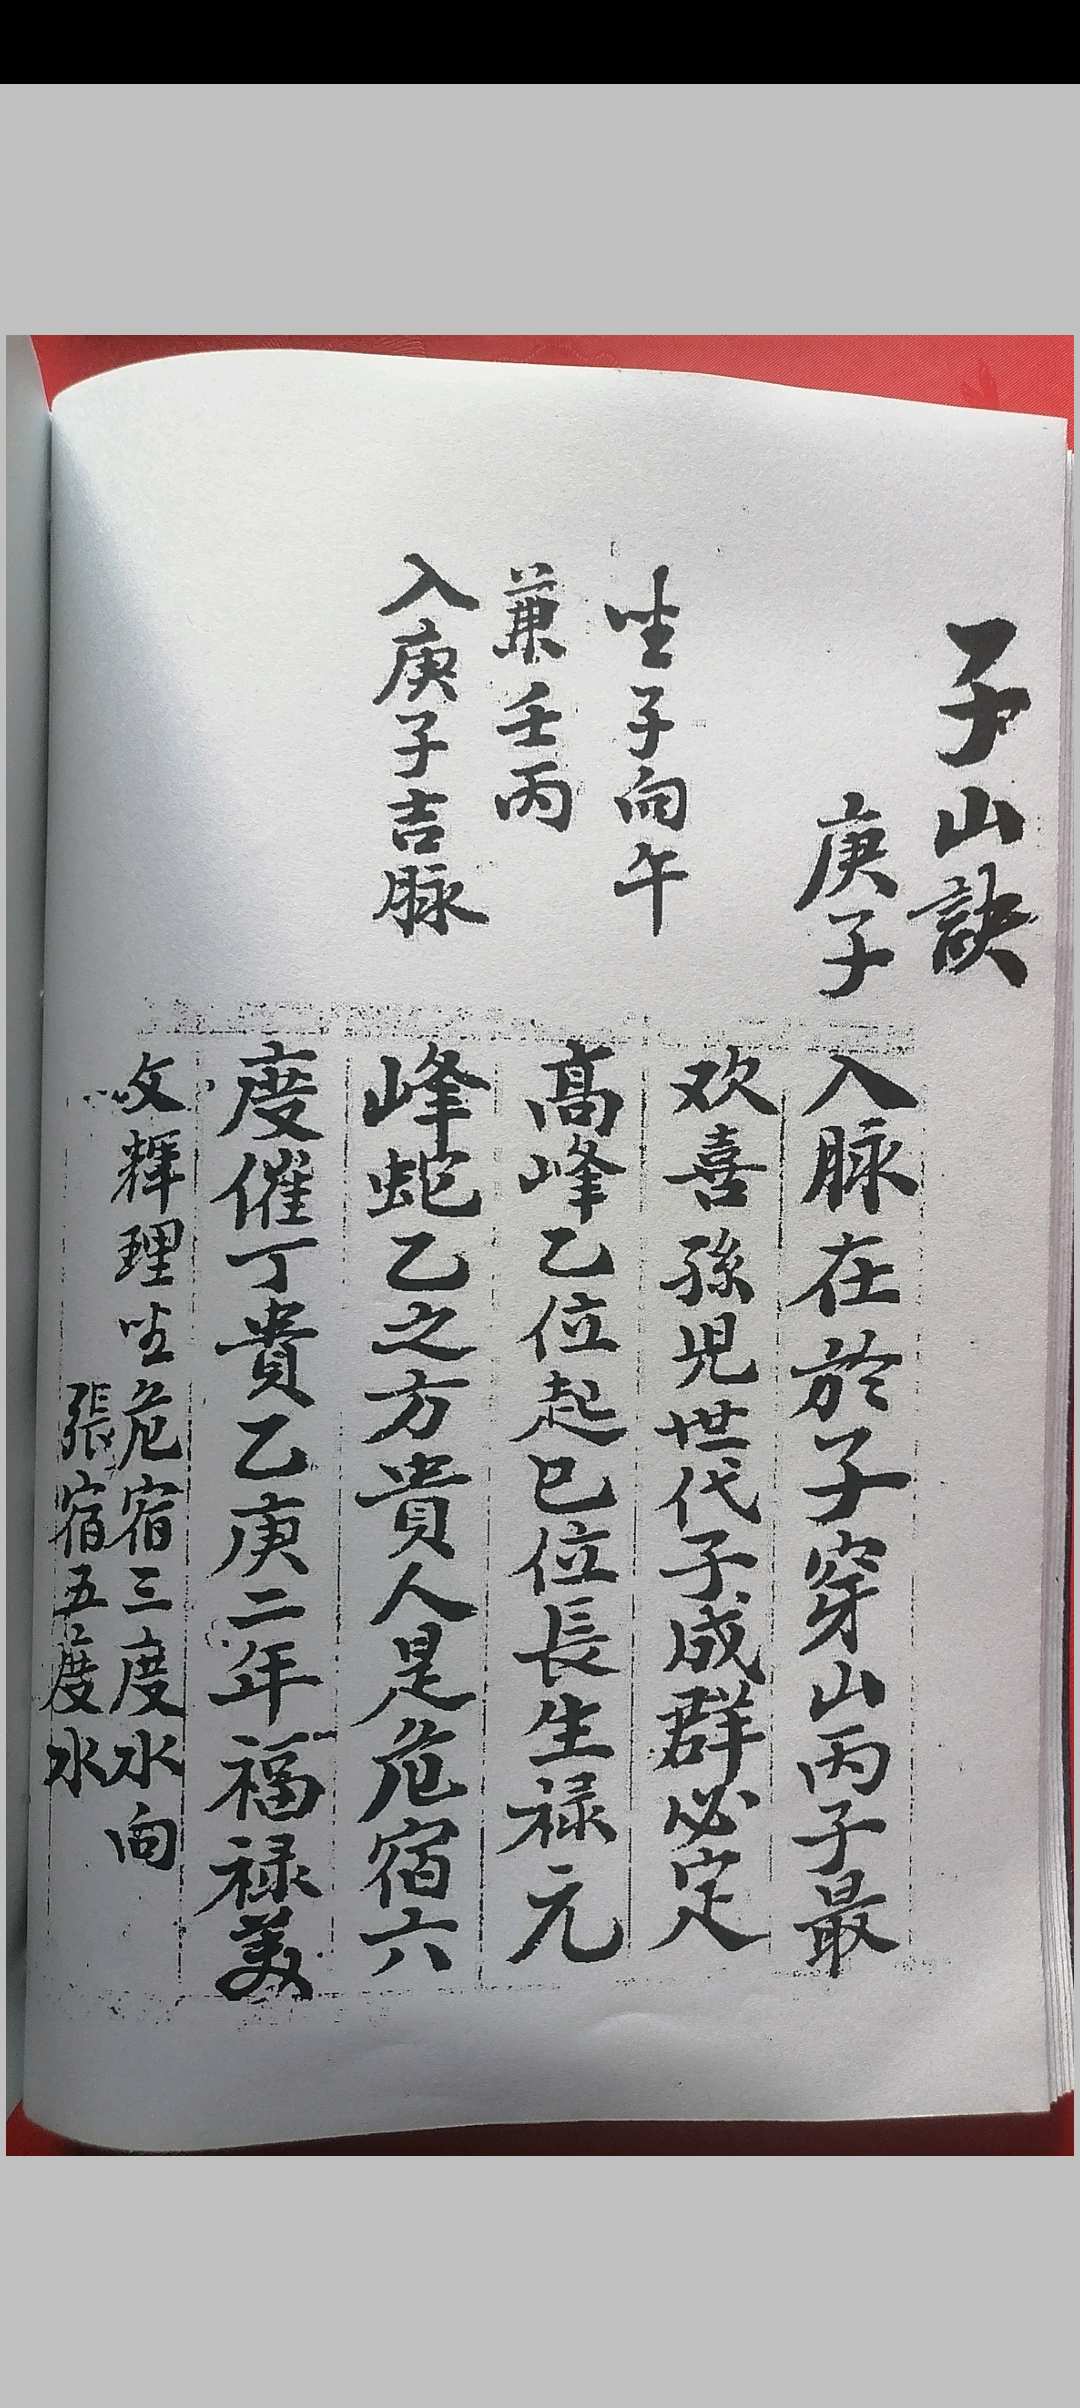 子山訣
庚子
坐子向午
兼壬丙
入庚子吉脉
入脉在於子穿山丙子最
欢喜孫児世代子成群必定
高峰乙位起巳位長生禄元
峰蛇乙之方貴人是危宿六
度催丁貴乙庚二年福禄美
文輝理坐危宿三度水向
張宿五度水